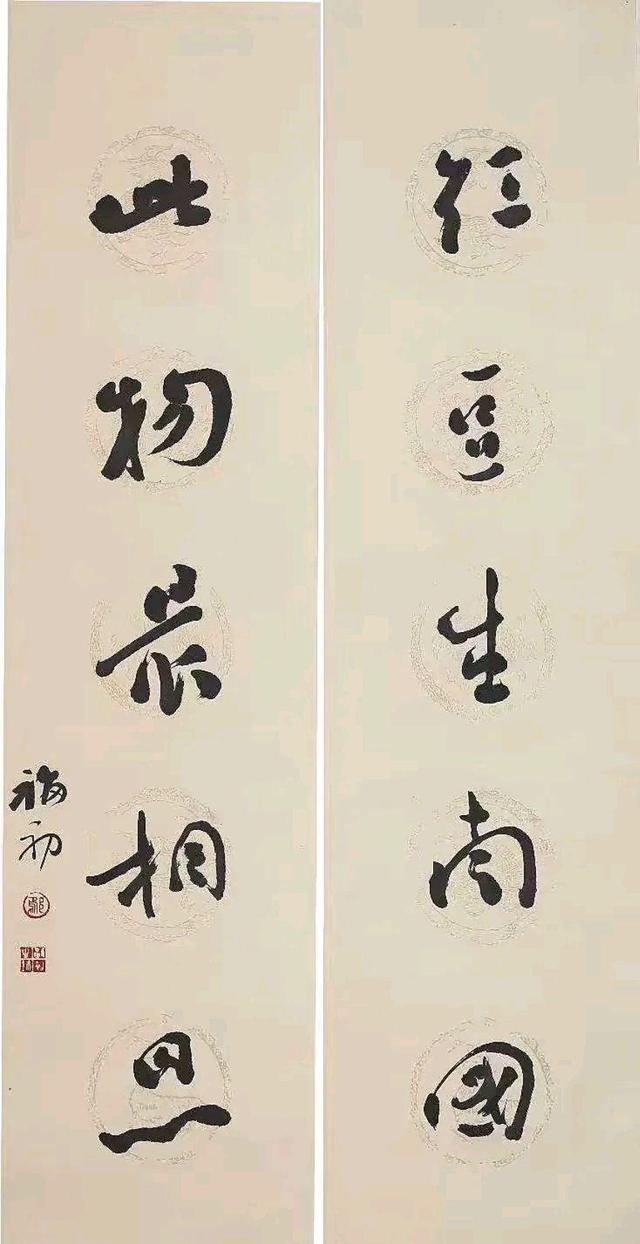 红豆生南国
此物最相思
福初